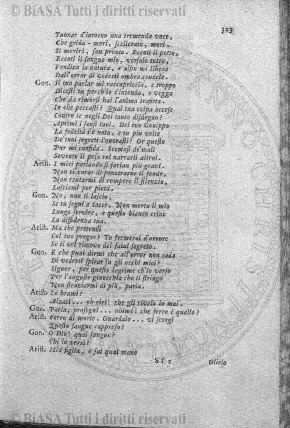 © BiASA Tutti i diritti riservati
323
Tuonar d'intorno una tremenda voce,
Che grida - mori, scellerato, mori.
Si morirò, son pronto. Eccoti il petto,
Eccoti il sangue mio, versalo tutto,
Vendica la natura, e alfin mi libera
Dall'orror di vederti ombra crudele.
Gon. Il tuo parlar mi raccapriccia, e troppo
Dicesti tu perch'io t'intenda, e vegga
Che da rimorsi hai l'anima trafitta.
In che peccasti? Qual tua colpa accese
Contro te negli Dei tanto disdegno?
Aprimi i sensi tuoi. Del tuo Gonippo
La fedeltà t'è nota, e tu più volte
De' tuoi segreti l'onorasti. Or questo
Pur mi confida. Scemasi de' mali
Sovente il peso col narrarli altrui.
Arist. I miei parlando si farian più gravi.
Non ti curar di penetrarne il fondo,
Non tentarmi di rompere il silenzio,
Lasciami per pietà.
Gon. No, non ti lascio,
Se tu segui a tacer. Non merta il mio
Lungo servire, e questo bianco crine
La diffidenza tua.
Arist. Ma che pretendi
Col tuo pregar? Tu fremerai d'orrore
Se il vel rimovo del fatal segreto.
Gon. E che puoi dirmi che all'orror non ceda
Di vederti spirar su gli occhi miei?
Signor, per queste lagrime ch'io verso
Per l'auguste ginocchia che ti stringo
Non straziarmi di più, parla.
Arist. Lo brami?
Alzati... oh ciel! che gli rivelo io mai.
Gon. Parla; prosegui... ohimè! che ferro è quello?
Arist. Ferro di morte. Guardalo... vi scorgi
Quello sangue rappreso?
Gon. O Dio! qual sangue?
Chi lo versò?
Arist. Mia figlia, e sai qual mano
S s 2
Gliela
© BiASA Tutti i diritti riservati